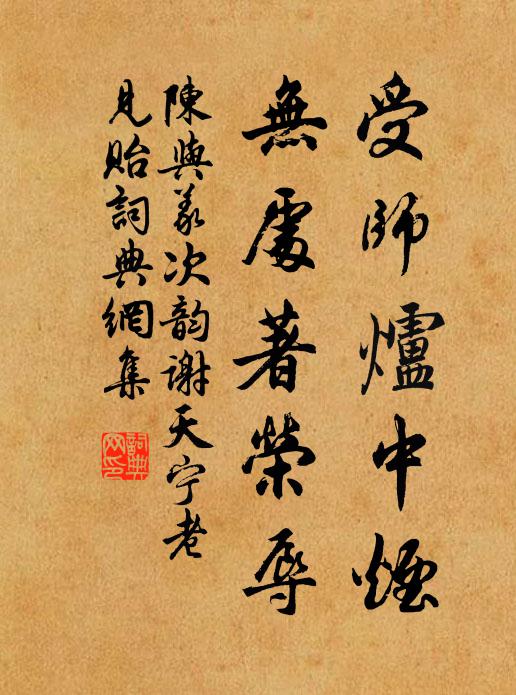 受師爐中煙
無處著榮辱
陳與義次韵謝天宁老
見貽詞典網集
詞典
网印